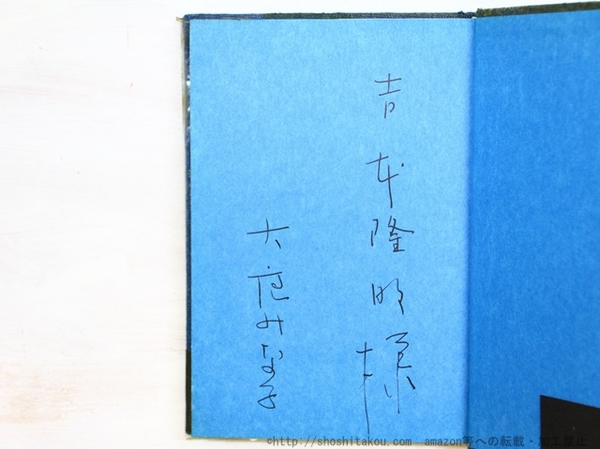 吉本隆明様
大庭みな子
©http://shoshitakou.com amazon等への転載・加工禁止